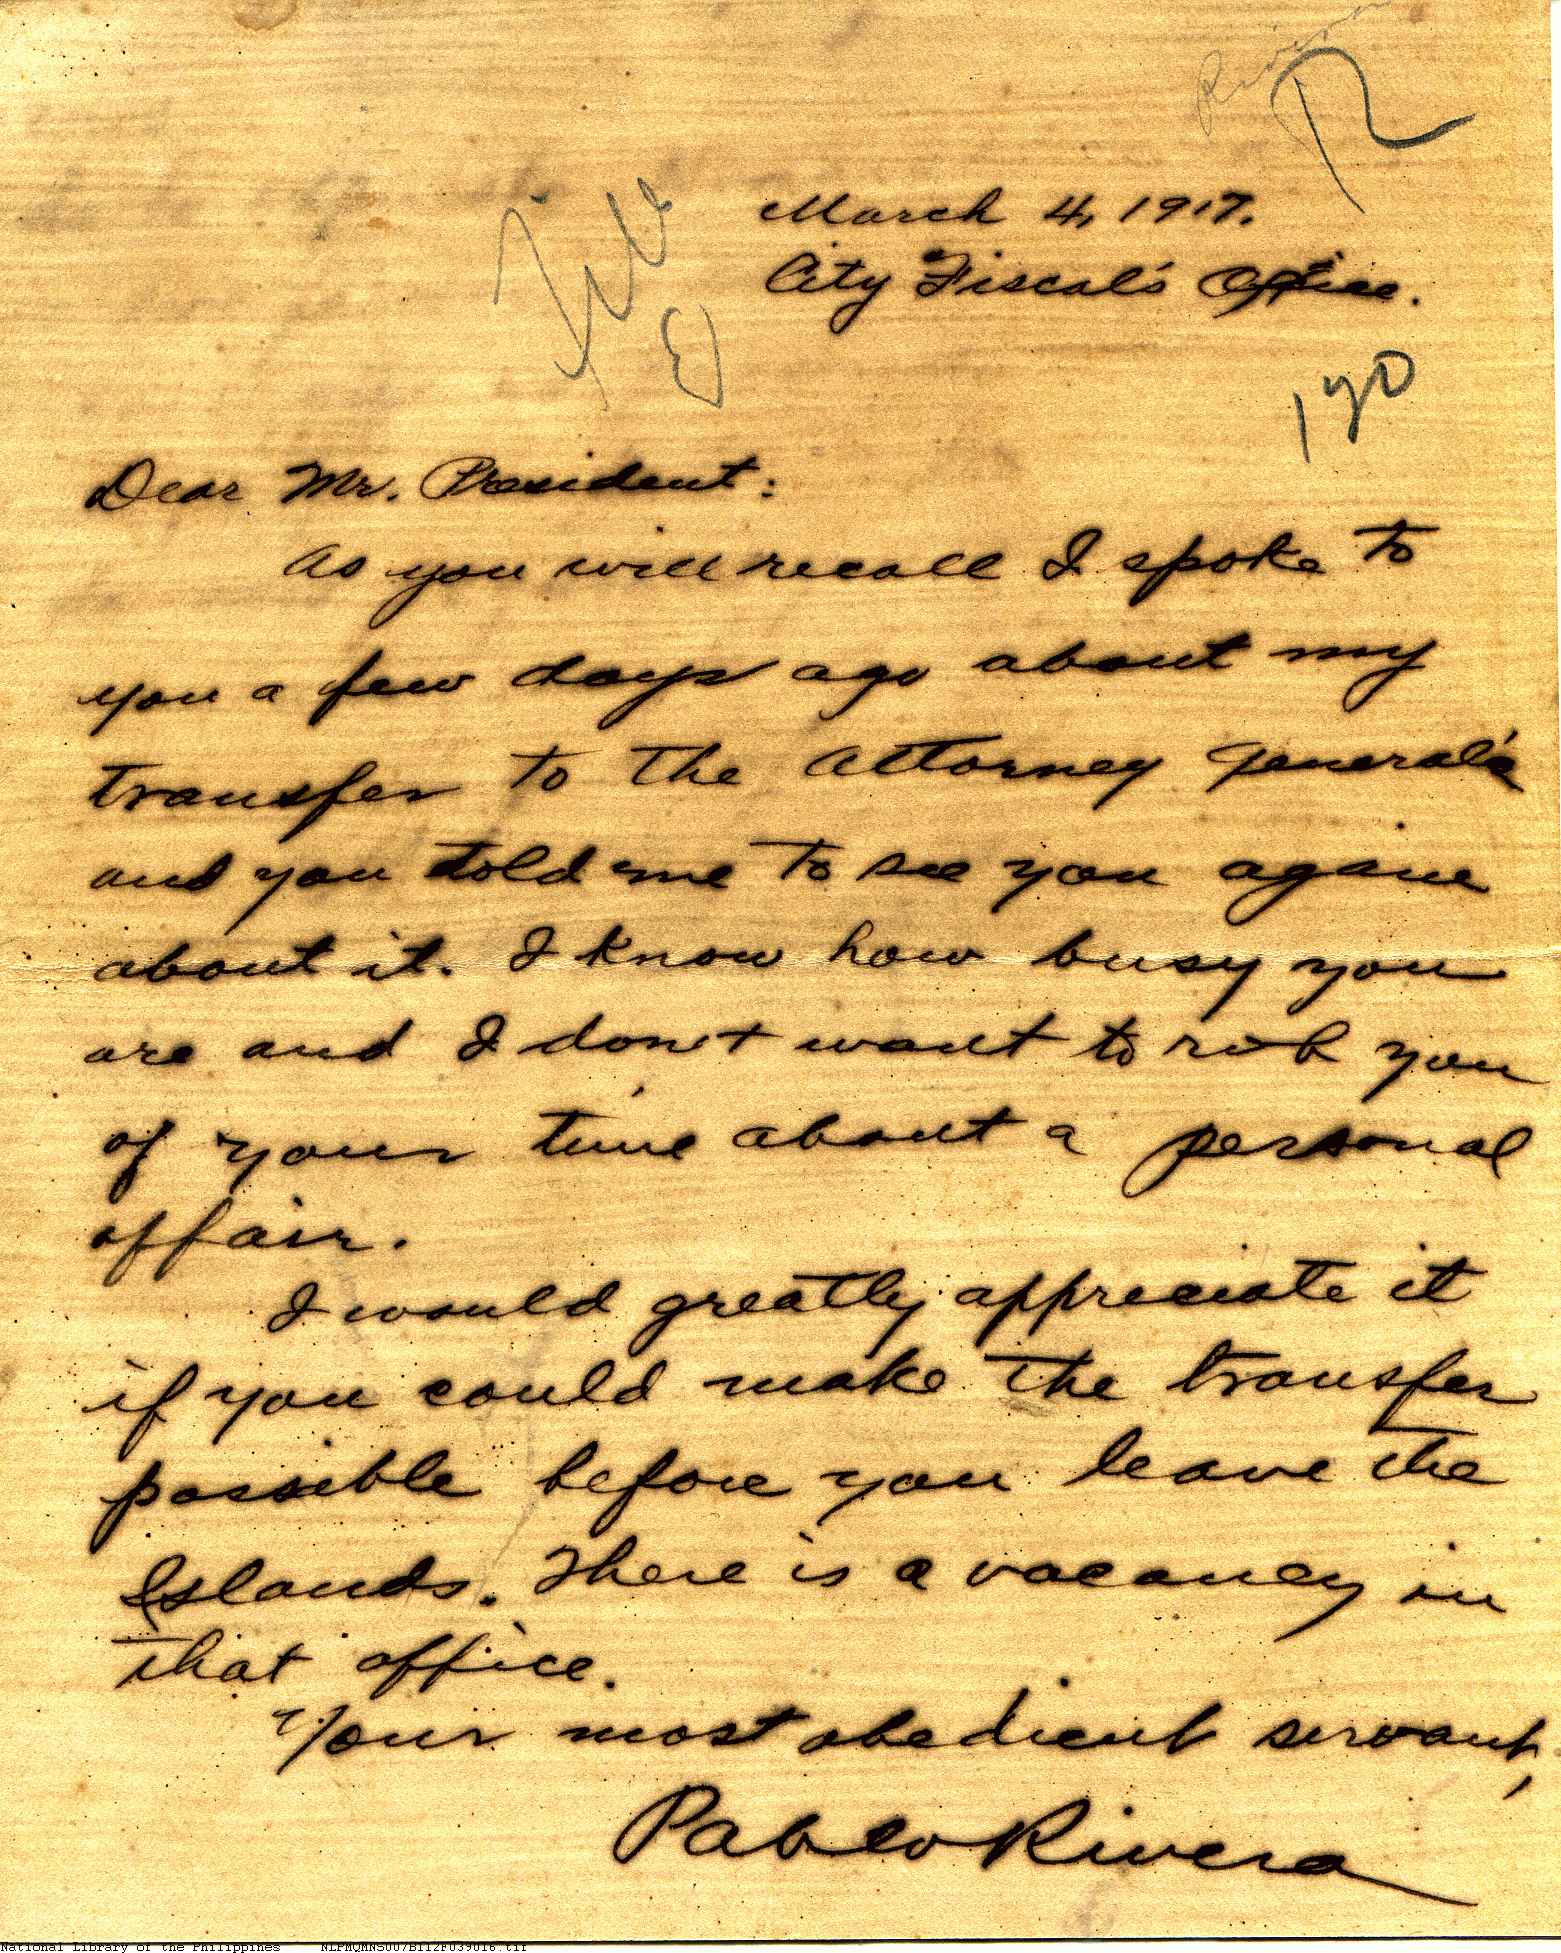 R
March 4, 1917.
City Fiscal's Office.
File
Dear Mr. President:
As you will recall I spoke to
you a few days ago about my
transfer to the Attorney General's
and you told me to see you again
about it. I know how busy you
are and I don't want to rob you
of your time about a personal
affair.
I would greatly appreciate it
if you could make the transfer
possible before you leave the
Islands. There is a vacancy in
that office.
Your most obedient servant,
Pablo Rivera
National Library of the Philippines NLPMQMNS007B112F039016.tif